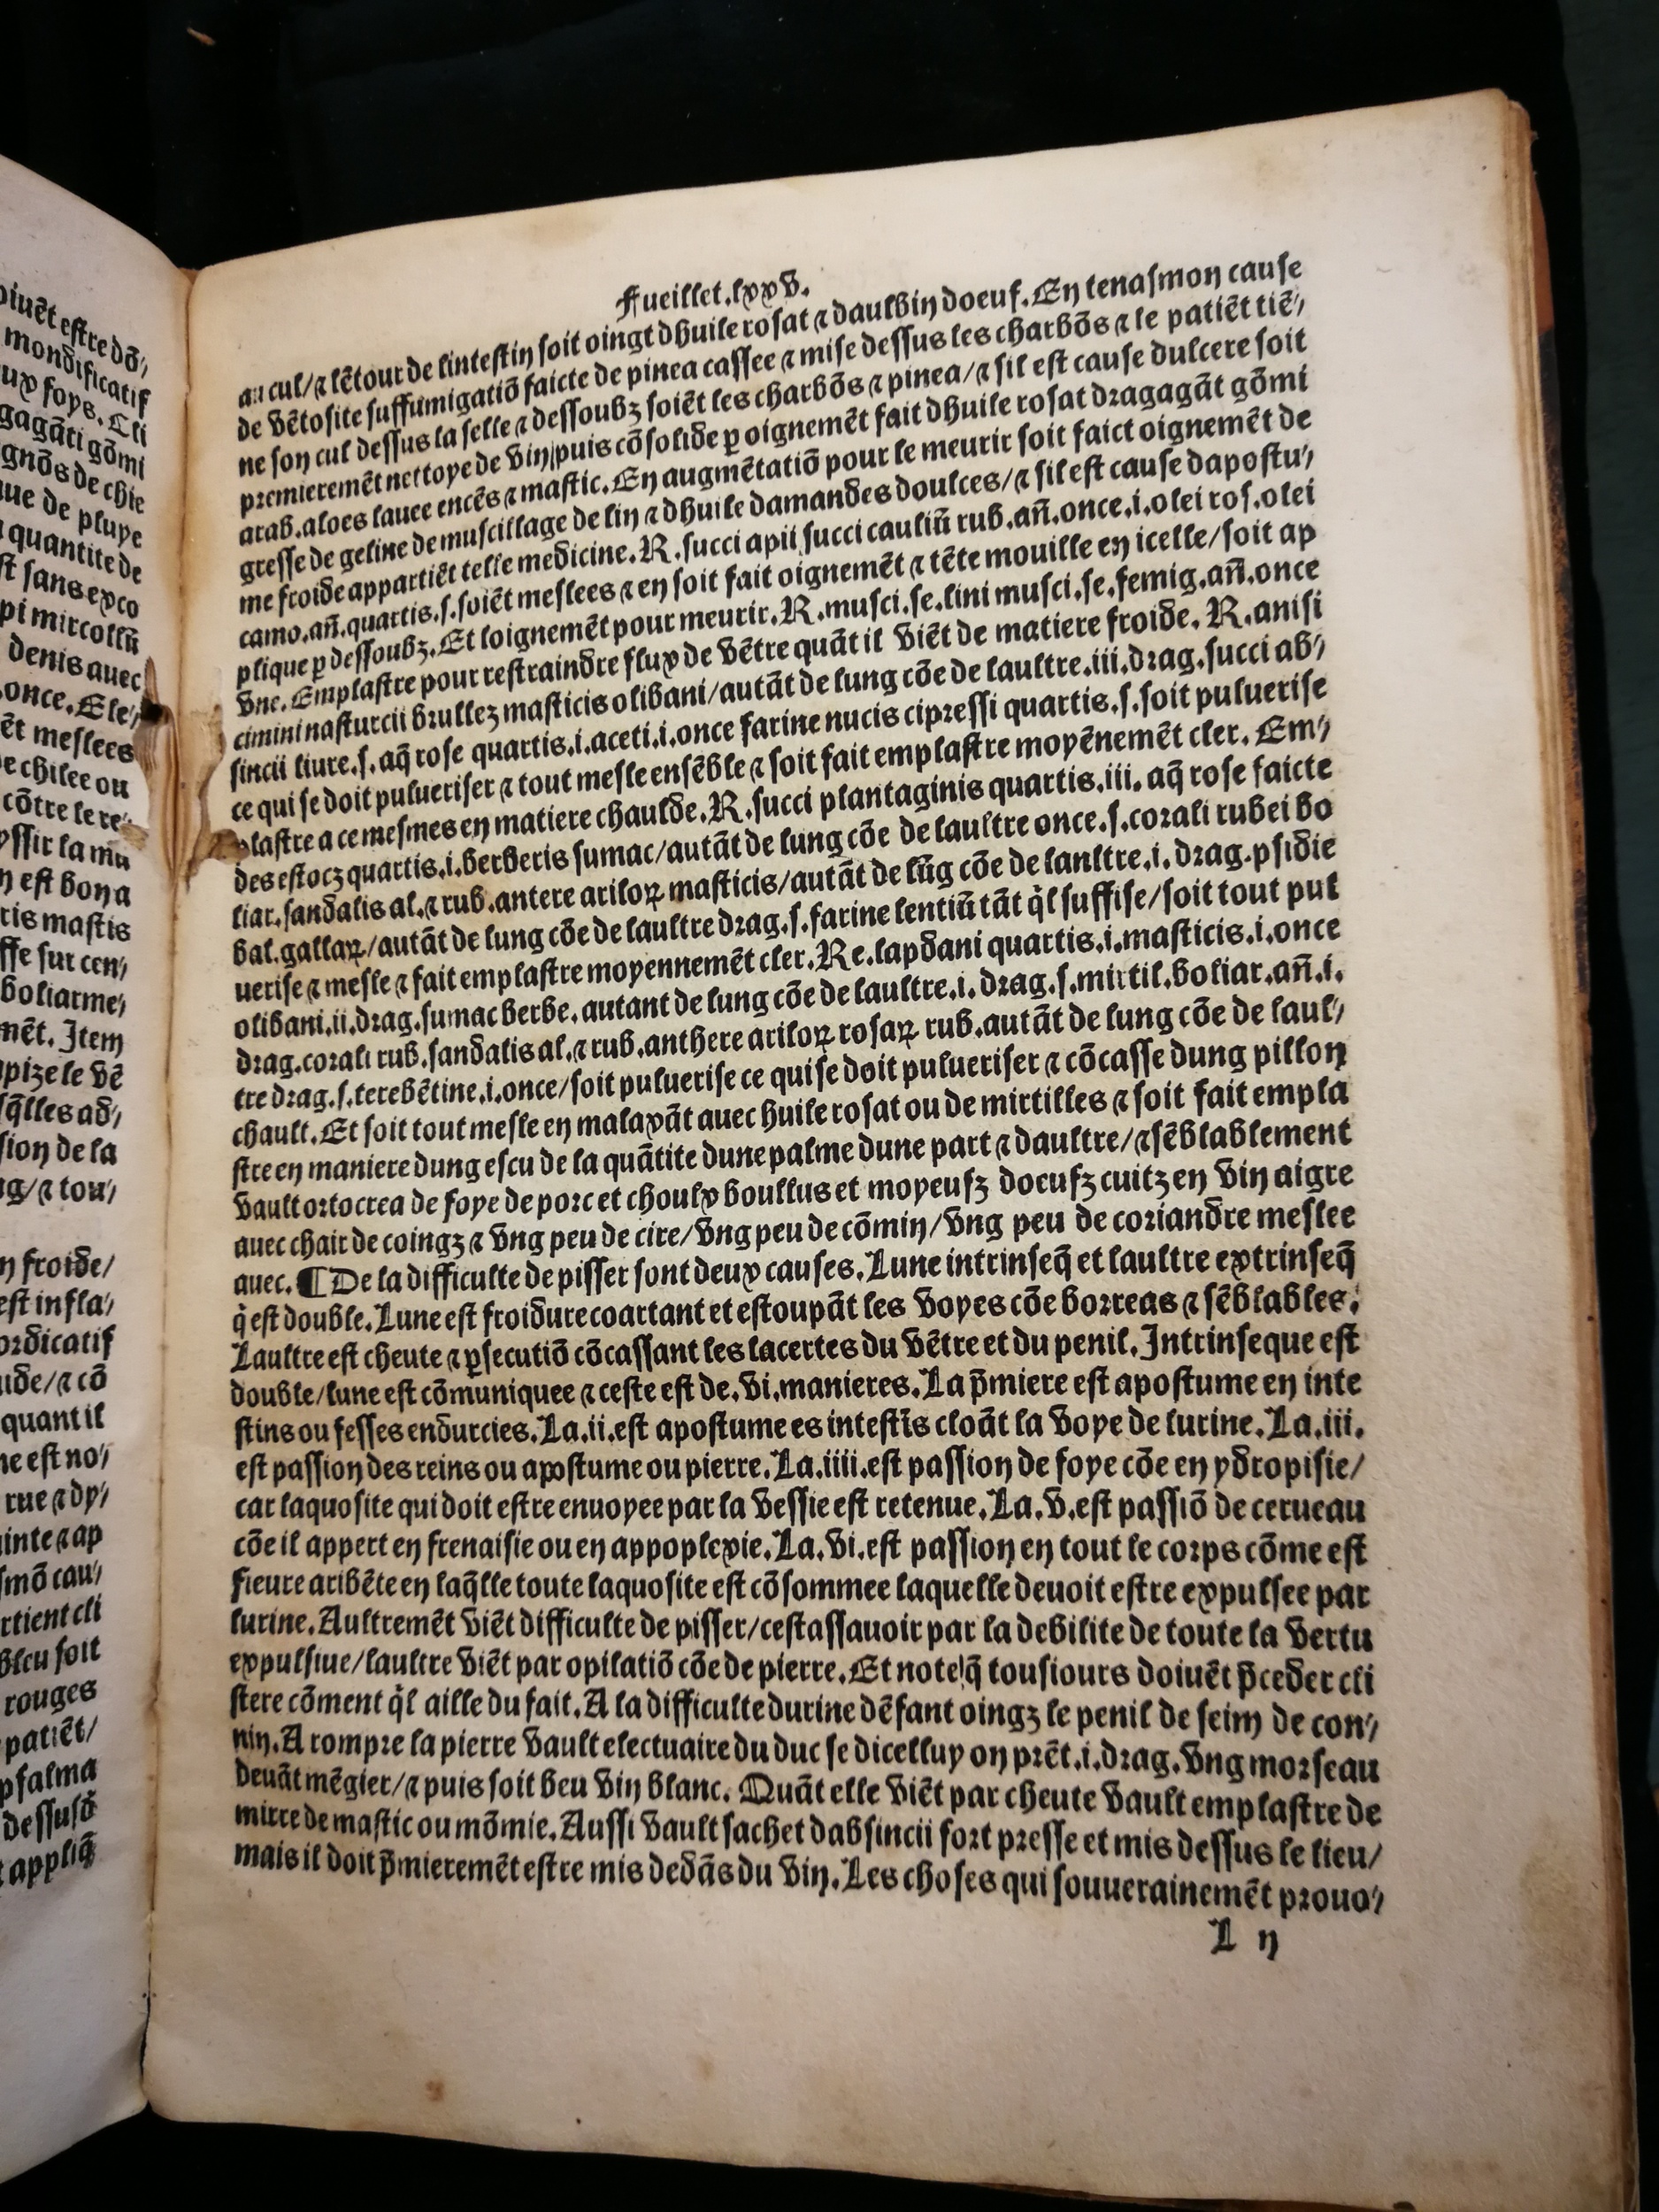 oiuẽt estre dõ/
mondificatif
ux foys. Cli
gagãti gõmi
gnõs de chie
que de pluye
quantite de
st sans exco
pi mircollũ
denis auec
.once. Ele/
ẽt meslees
de chilee ou
cõtre le re/
yssir la mu
n est bon a
ris mastis
sse sur cen/
boliarme/
mẽt. Item
pize le vẽ
sq̃lles ad/
sion de la
ng/ ⁊ tou/
n froide/
est infla/
ordicatif
uide/ ⁊ cõ
quant il
ne est no/
rue ⁊ dy/
inte ⁊ ap
smõ cau/
rtient cli
bleu soit
rouges
patiẽt/
psalma
dessusd̃
appliq̃
Fueillet.lxxv.
au cul/⁊ lẽtour de lintestin soit oingt dhuile rosat ⁊ daulbin doeuf. En tenasmon cause
de vẽtosite suffumigatiõ faicte de pinea cassee ⁊ mise dessus les charbõs ⁊ le patiẽt tiẽ/
ne son cul dessus la selle ⁊ dessoubz soiẽt les charbõs ⁊ pinea/⁊ sil est cause dulcere soit
premieremẽt nettoye de vin/puis cõsolide ꝑ oignemẽt fait dhuile rosat dragagãt gõmi
arab.aloes lauee encẽs ⁊ mastic. En augmẽtatiõ pour le meurir soit faict oignemẽt de
gresse de geline de muscillage de lin ⁊ dhuile damandes doulces/⁊ sil est cause dapostu/
me froide appartiẽt telle medicine. R̷.succi apii succi cauliũ rub.añ.once.i.olei ros.olei
camo.añ.quartis.s.soiẽt meslees ⁊ en soit fait oignemẽt ⁊ tẽte mouille en icelle/soit ap
plique ꝑ dessoubz. Et loignemẽt pour meurir. R̷.musci.se.lini musci.se.femig.añ.once
vne. Emplastre pour restraindre flux de vẽtre quãt il viẽt de matiere froide. R̷.anisi
cimini nasturcii brullez masticis olibani/autãt de lung cõe de laultre.iii.drag.succi ab/
sincii liure.s.aq̃ rose quartis.i.aceti.i.once farine nucis cipressi quartis.s.soit puluerise
ce qui se doit pulueriser ⁊ tout mesle ensẽble ⁊ soit fait emplastre moyẽnemẽt cler. Em/
plastre a ce mesmes en matiere chaulde. R̷.succi plantaginis quartis.iii. aq̃ rose faicte
des estocz quartis.i.berberis sumac/autãt de lung cõe de laultre once.s.corali rubei bo
liar.sandalis al.⁊ rub.antere ariloꝝ masticis/autãt de lũg cõe de lanltre.i. drag.psidie
bal.gallaꝝ/autãt de lung cõe de laultre drag.s.farine lentiũ tãt q̃l suffise/soit tout pul
uerise ⁊ mesle ⁊ fait emplastre moyennemẽt cler. Re.lapdani quartis.i.masticis.i.once
olibani.ii.drag.sumac berbe. autant de lung cõe de laultre.i. drag.s.mirtil.boliar.añ.i.
drag.corali rub.sandalis al.⁊ rub.anthere ariloꝝ rosaꝝ rub.autãt de lung cõe de laul/
tre drag.s.terebẽtine.i.once/soit puluerise ce qui se doit pulueriser ⁊ cõcasse dung pillon
chault. Et soit tout mesle en malaxãt auec huile rosat ou de mirtilles ⁊ soit fait empla
stre en maniere dung escu de la quãtite dune palme dune part ⁊ daultre/⁊ sẽblablement
vault ortocrea de foye de porc et choulx boullus et moyeufz doeufz cuitz en vin aigre
auec chair de coingz ⁊ vng peu de cire/vng peu de cõmin/vng peu de coriandre meslee
auec. ¶ De la difficulte de pisser sont deux causes. Lune intrinseq̃ et laultre extrinseq̃
q̃ est double. Lune est froidure coartant et estoupãt les voyes cõe borreas ⁊ sẽblables.
Laultre est cheute ⁊ ꝑsecutiõ cõcassant les lacertes du vẽtre et du penil. Intrinseque est
double/lune est cõmuniquee ⁊ ceste est de.vi.manieres. La p̃miere est apostume en inte
stins ou fesses endurcies. La.ii.est apostume es intestĩs cloãt la voye de lurine. La.iii.
est passion des reins ou apostume ou pierre. La.iiii.est passion de foye cõe en ydropisie/
car laquosite qui doit estre enuoyee par la vessie est retenue. La.v.est passiõ de cerueau
cõe il appert en frenaisie ou en appoplexie. La.vi.est passion en tout le corps cõme est
fieure aribẽte en laq̃lle toute laquosite est cõsommee laquelle deuoit estre expulsee par
lurine. Aultremẽt viẽt difficulte de pisser/cestassauoir par la debilite de toute la vertu
expulsiue/laultre viẽt par opilatiõ cõe de pierre. Et note q̃ tousiours doiuẽt p̃ceder cli
stere cõment q̃l aille du fait. A la difficulte durine dẽfant oingz le penil de seim de con/
nin. A rompre la pierre vault electuaire du duc se dicelluy on prẽt.i.drag.vng morseau
deuãt mẽgier/⁊ puis soit beu vin blanc. Quãt elle viẽt par cheute vault emplastre de
mirre de mastic ou mõmie. Aussi vault sachet dabsincii fort presse et mis dessus le lieu/
mais il doit p̃mieremẽt estre mis dedãs du vin. Les choses qui souuerainemẽt prouo/
L ii